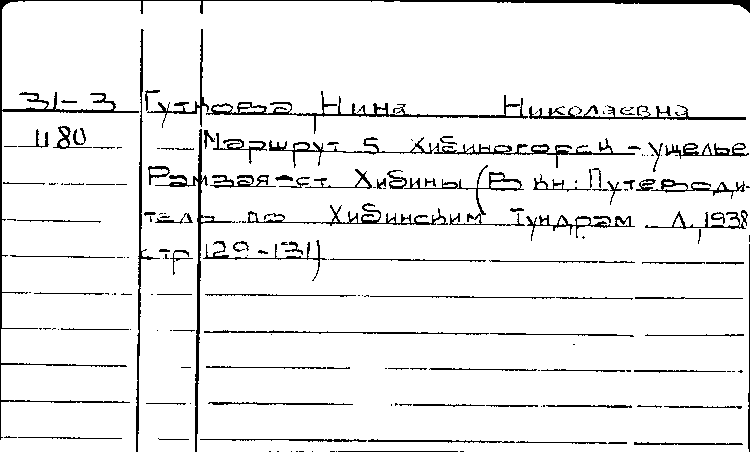 31-3 Гуткова Нина Николаевна
1180 Маршрут 5. Хибиногорск - ущелье
Рамзая - ст. Хибины (В кн: Путеводи-
тель по Хибинским Тундрам. Л., 1938
стр 129-131)